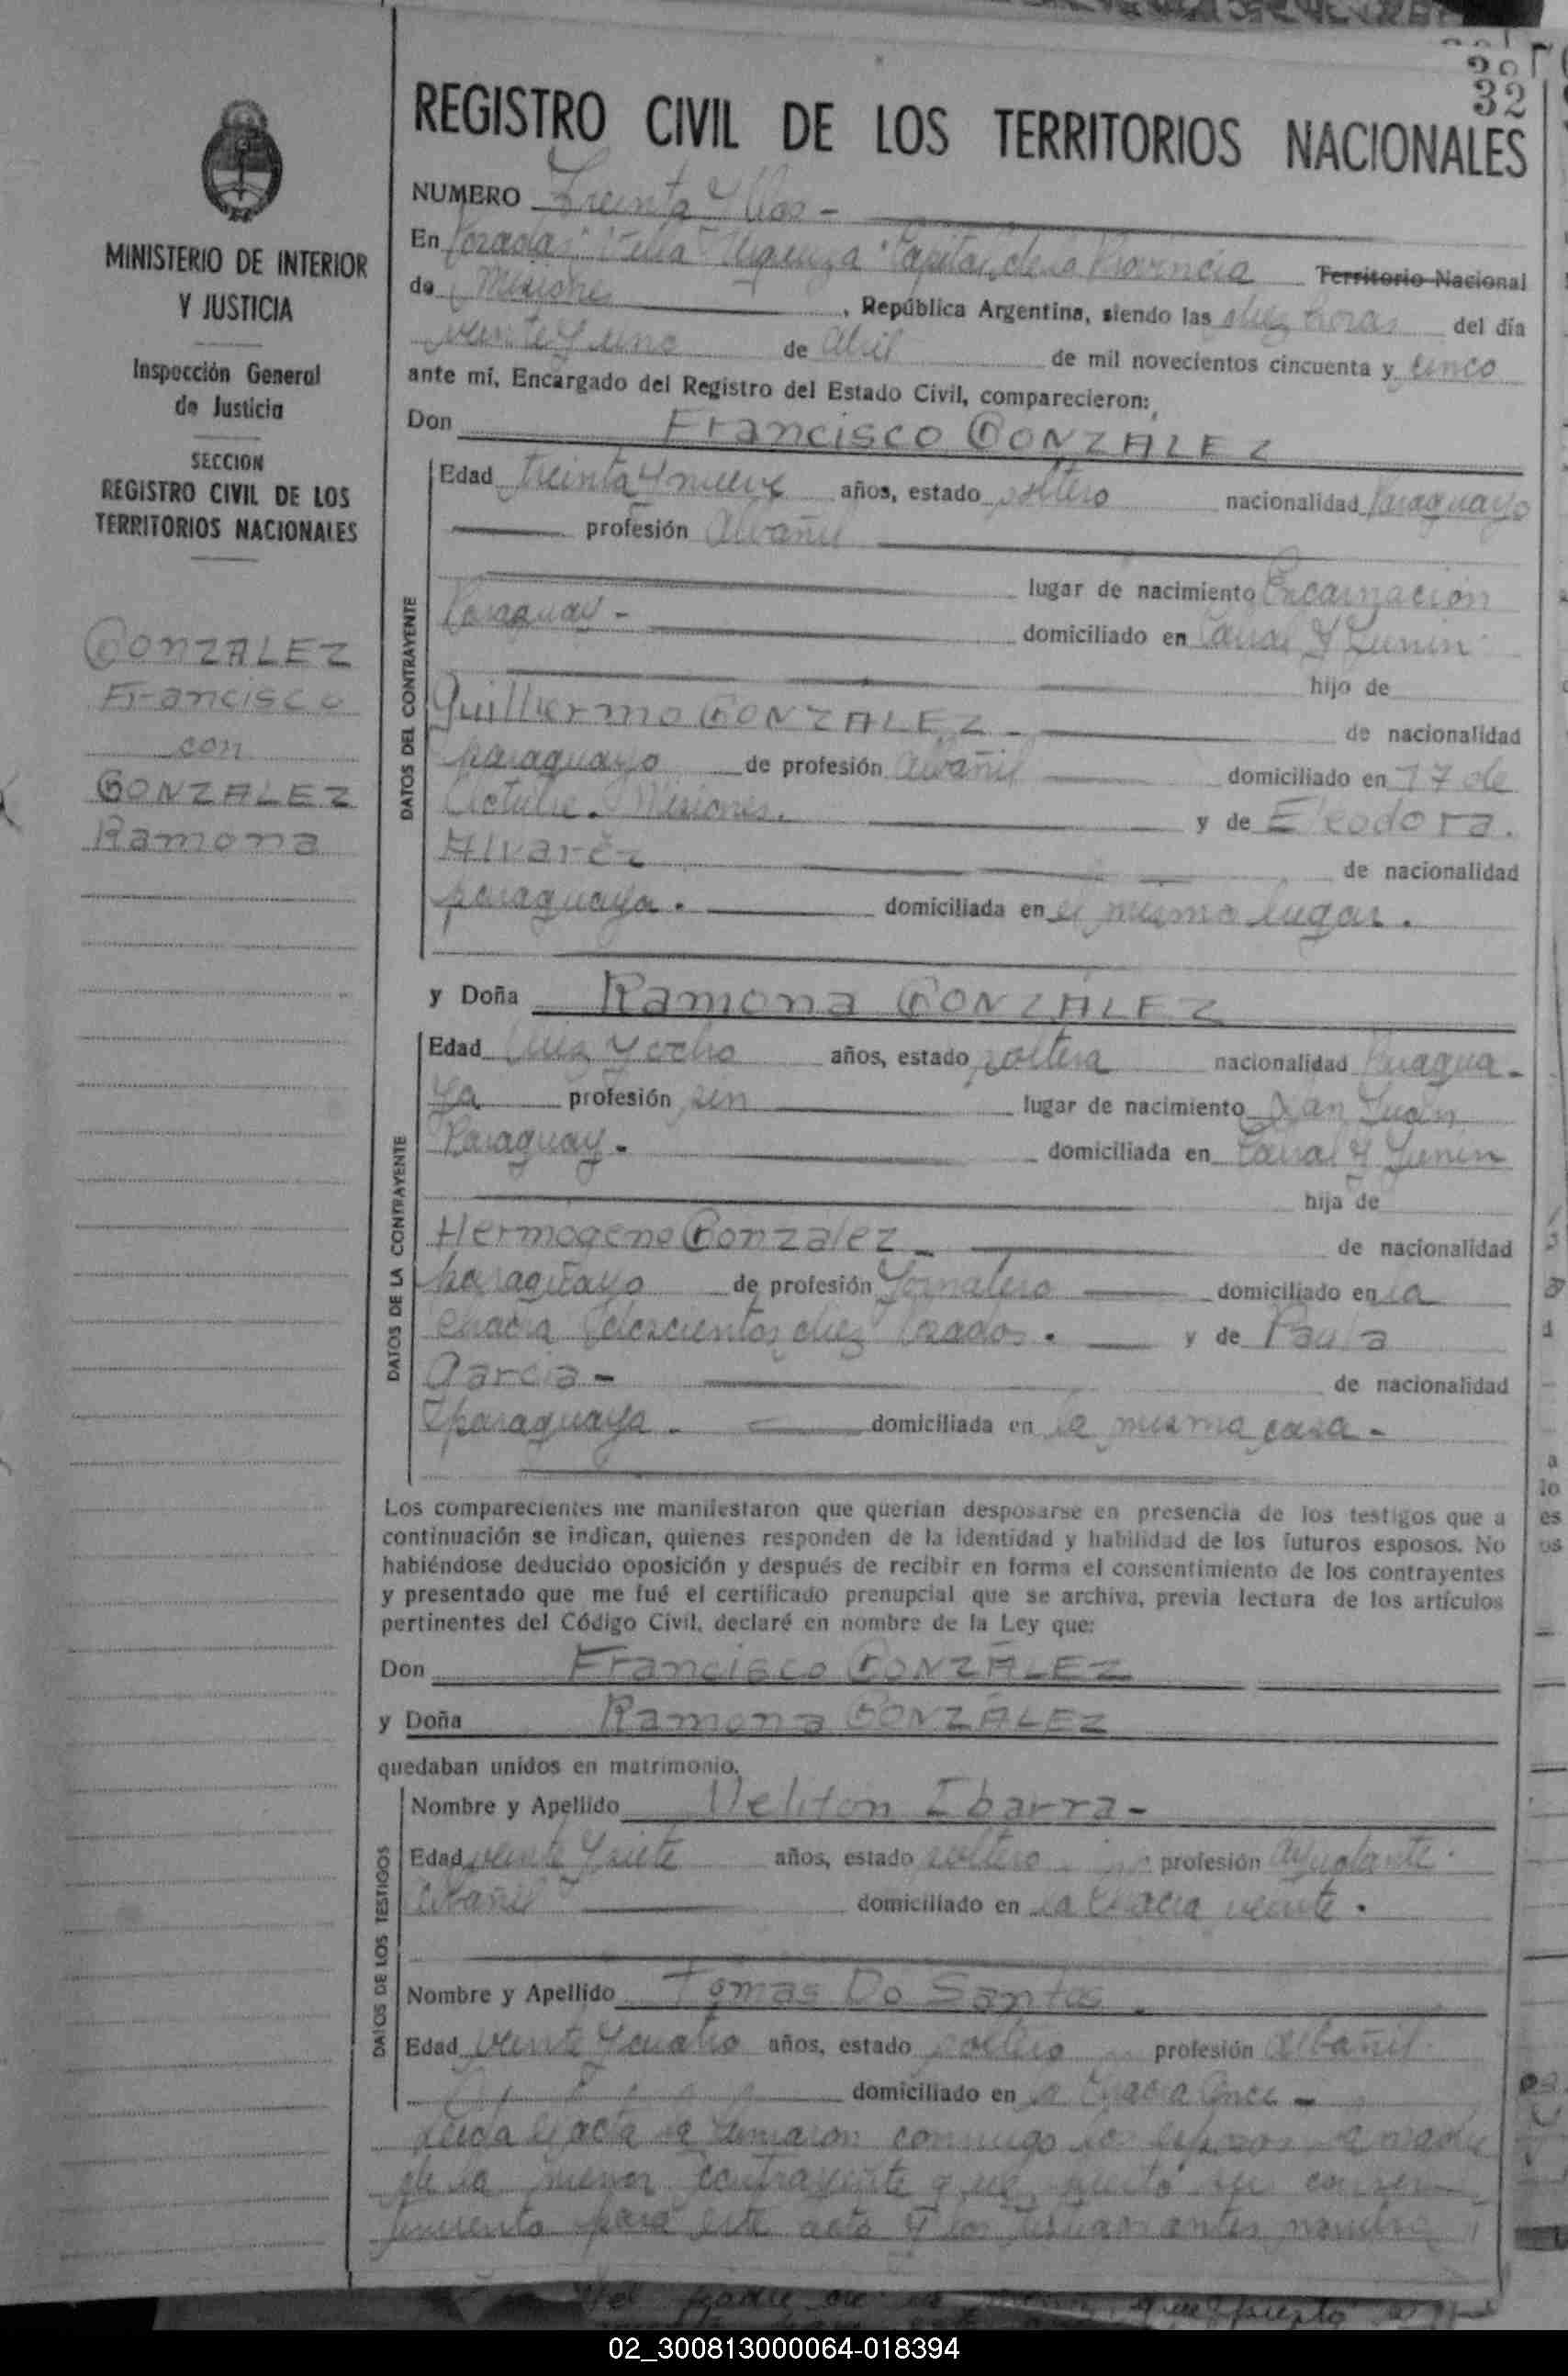 32
REGISTRO CIVIL DE LOS TERRITORIOS NACIONALES
MINISTERIO DE INTERIOR
Y JUSTICIA
Inspección General
de Justicia
SECCION
REGISTRO CIVIL DE LOS
TERRITORIOS NACIONALES
GONZALEZ
Francisco
con
GONZALEZ
Ramona
NUMERO Treinta y Dos -
En Posadas Villa Urquiza Capital de la Provincia Territorio Nacional
de Misiones, República Argentina, siendo las diez horas del día
veinte y uno de Abril de mil novecientos cincuenta y cinco
ante mí, Encargado del Registro del Estado Civil, comparecieron:
Don Francisco GONZÁLEZ
DATOS DEL CONTRAYENTE
Edad treinta y nueve años, estado soltero nacionalidad Paraguayo
profesión Albañil
lugar de nacimiento Encarnación
Paraguay - domiciliado en Cabral y Junín
hijo de
Guillermo GONZALEZ - de nacionalidad
paraguayo de profesión Albañil domiciliado en 17 de
Octubre. Misiones. y de Eleodora.
Alvarez de nacionalidad
paraguaya. domiciliada en el mismo lugar.
y Doña Ramona GONZÁLEZ
DATOS DE LA CONTRAYENTE
Edad Diez y ocho años, estado soltera nacionalidad Paragua-
ya profesión sin lugar de nacimiento San Juan
Paraguay. domiciliada en Cabral y Junín
hija de
Hermógeno González - de nacionalidad
paraguayo de profesión Jornalero domiciliado en la
chacra doscientos diez Posadas. y de Paula
Garcia - de nacionalidad
paraguaya. domiciliada en la misma casa -
Los comparecientes me manifestaron que querían desposarse en presencia de los testigos que a
continuación se indican, quienes responden de la identidad y habilidad de los futuros esposos. No
habiéndose deducido oposición y después de recibir en forma el consentimiento de los contrayentes
y presentado que me fué el certificado prenupcial que se archiva, previa lectura de los artículos
pertinentes del Código Civil, declaré en nombre de la Ley que:
Don Francisco GONZÁLEZ
y Doña Ramona GONZÁLEZ
quedaban unidos en matrimonio.
DATOS DE LOS TESTIGOS
Nombre y Apellido Meliton Ibarra -
Edad veinte y siete años, estado soltero profesión Ayudante
Albañil domiciliado en la chacra veinte.
Nombre y Apellido Tomas Do Santos.
Edad veinte y cuatro años, estado soltero profesión Albañil
domiciliado en la chacra once -
Leida el acta la firmaron conmigo los esposos la madre
de la menor contrayente que prestó su consen-
timiento para este acto y los testigos antes nombra
02_300813000064-018394